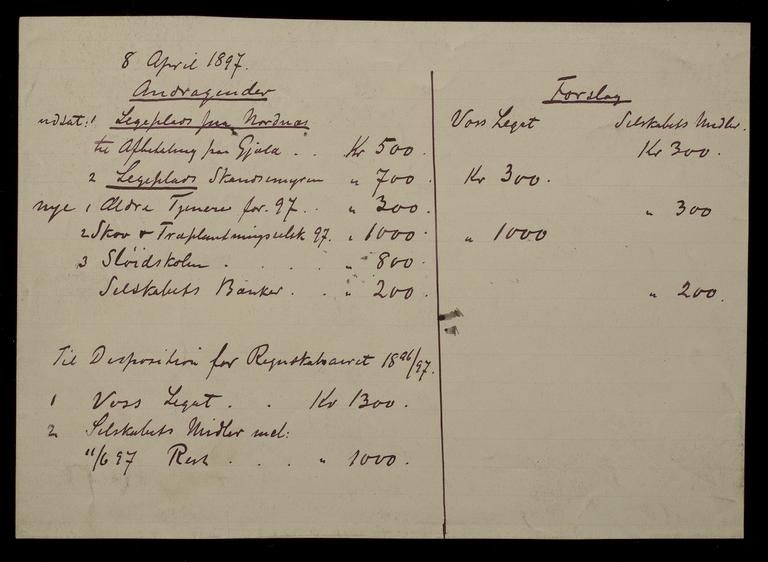 8 April 1897.
Andragender
Forslag
udsat: 1 Legeplads paa Nordnæs
Voss Legat Selskabets Midler.
til Afbetaling paa Gjæld . . Kr 500. Kr 300.
2 Legeplads Skandsemyren " 700. Kr 300.
nye 1 Ældre Tjenere for 97 . . " 300. " 300
2 Skov & Træplantningsselsk 97. " 1000. " 1000
3 Slöidskolen . . . . " 800.
Selskabets Bænker . . " 200. " 200.
Til Disposition for Regnskabsaaret 1896/97.
1 Voss Legat . . Kr 1300.
2 Selskabets Midler incl:
11/6 97 Rest . . . " 1000.